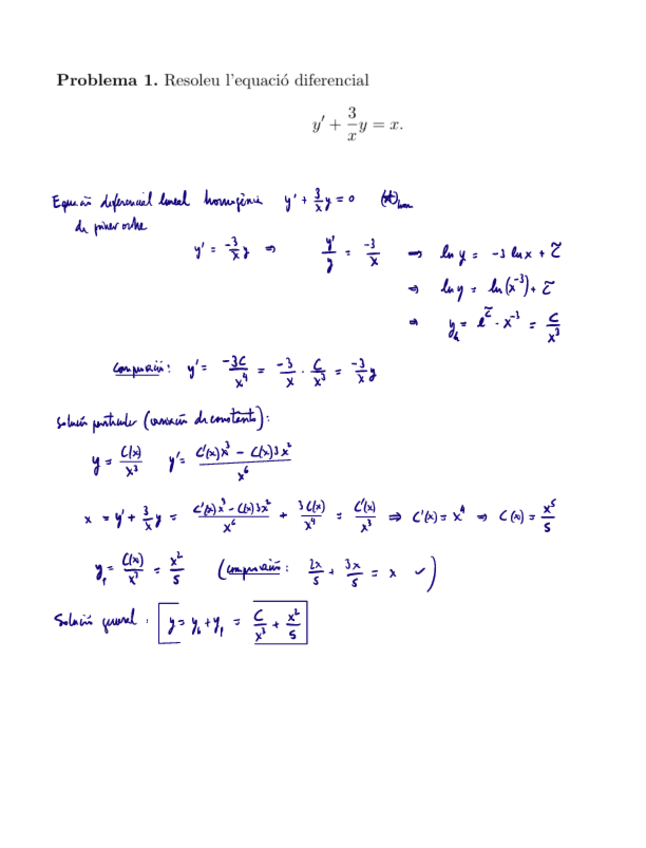 Problema 1. Resoleu l'equació diferencial
y' + 3/x y = x.
Equació diferencial lineal homogènia y' + 3/x y = 0 (*)hom
de primer ordre
y' = -3/x y ⇒ y'/y = -3/x ⇒ ln y = -3 ln x + c̃
⇒ ln y = ln(x^-3) + c̃
⇒ y_h = e^c̃ · x^-3 = C/x^3
y' = -3C/x^4 = -3/x · C/x^3 = -3/x y
Solució particular (variació de constants):
y = C(x)/x^3 y' = (C'(x)x^3 - C(x)3x^2)/x^6
x = y' + 3/x y = (C'(x)x^3 - C(x)3x^2)/x^6 + 3C(x)/x^4 = C'(x)/x^3 ⇒ C'(x) = x^4 ⇒ C(x) = x^5/5
y_p = C(x)/x^3 = x^2/5 ( : 2x/5 + 3x/5 = x ✓)
Solució general: y = y_h + y_p = C/x^3 + x^2/5